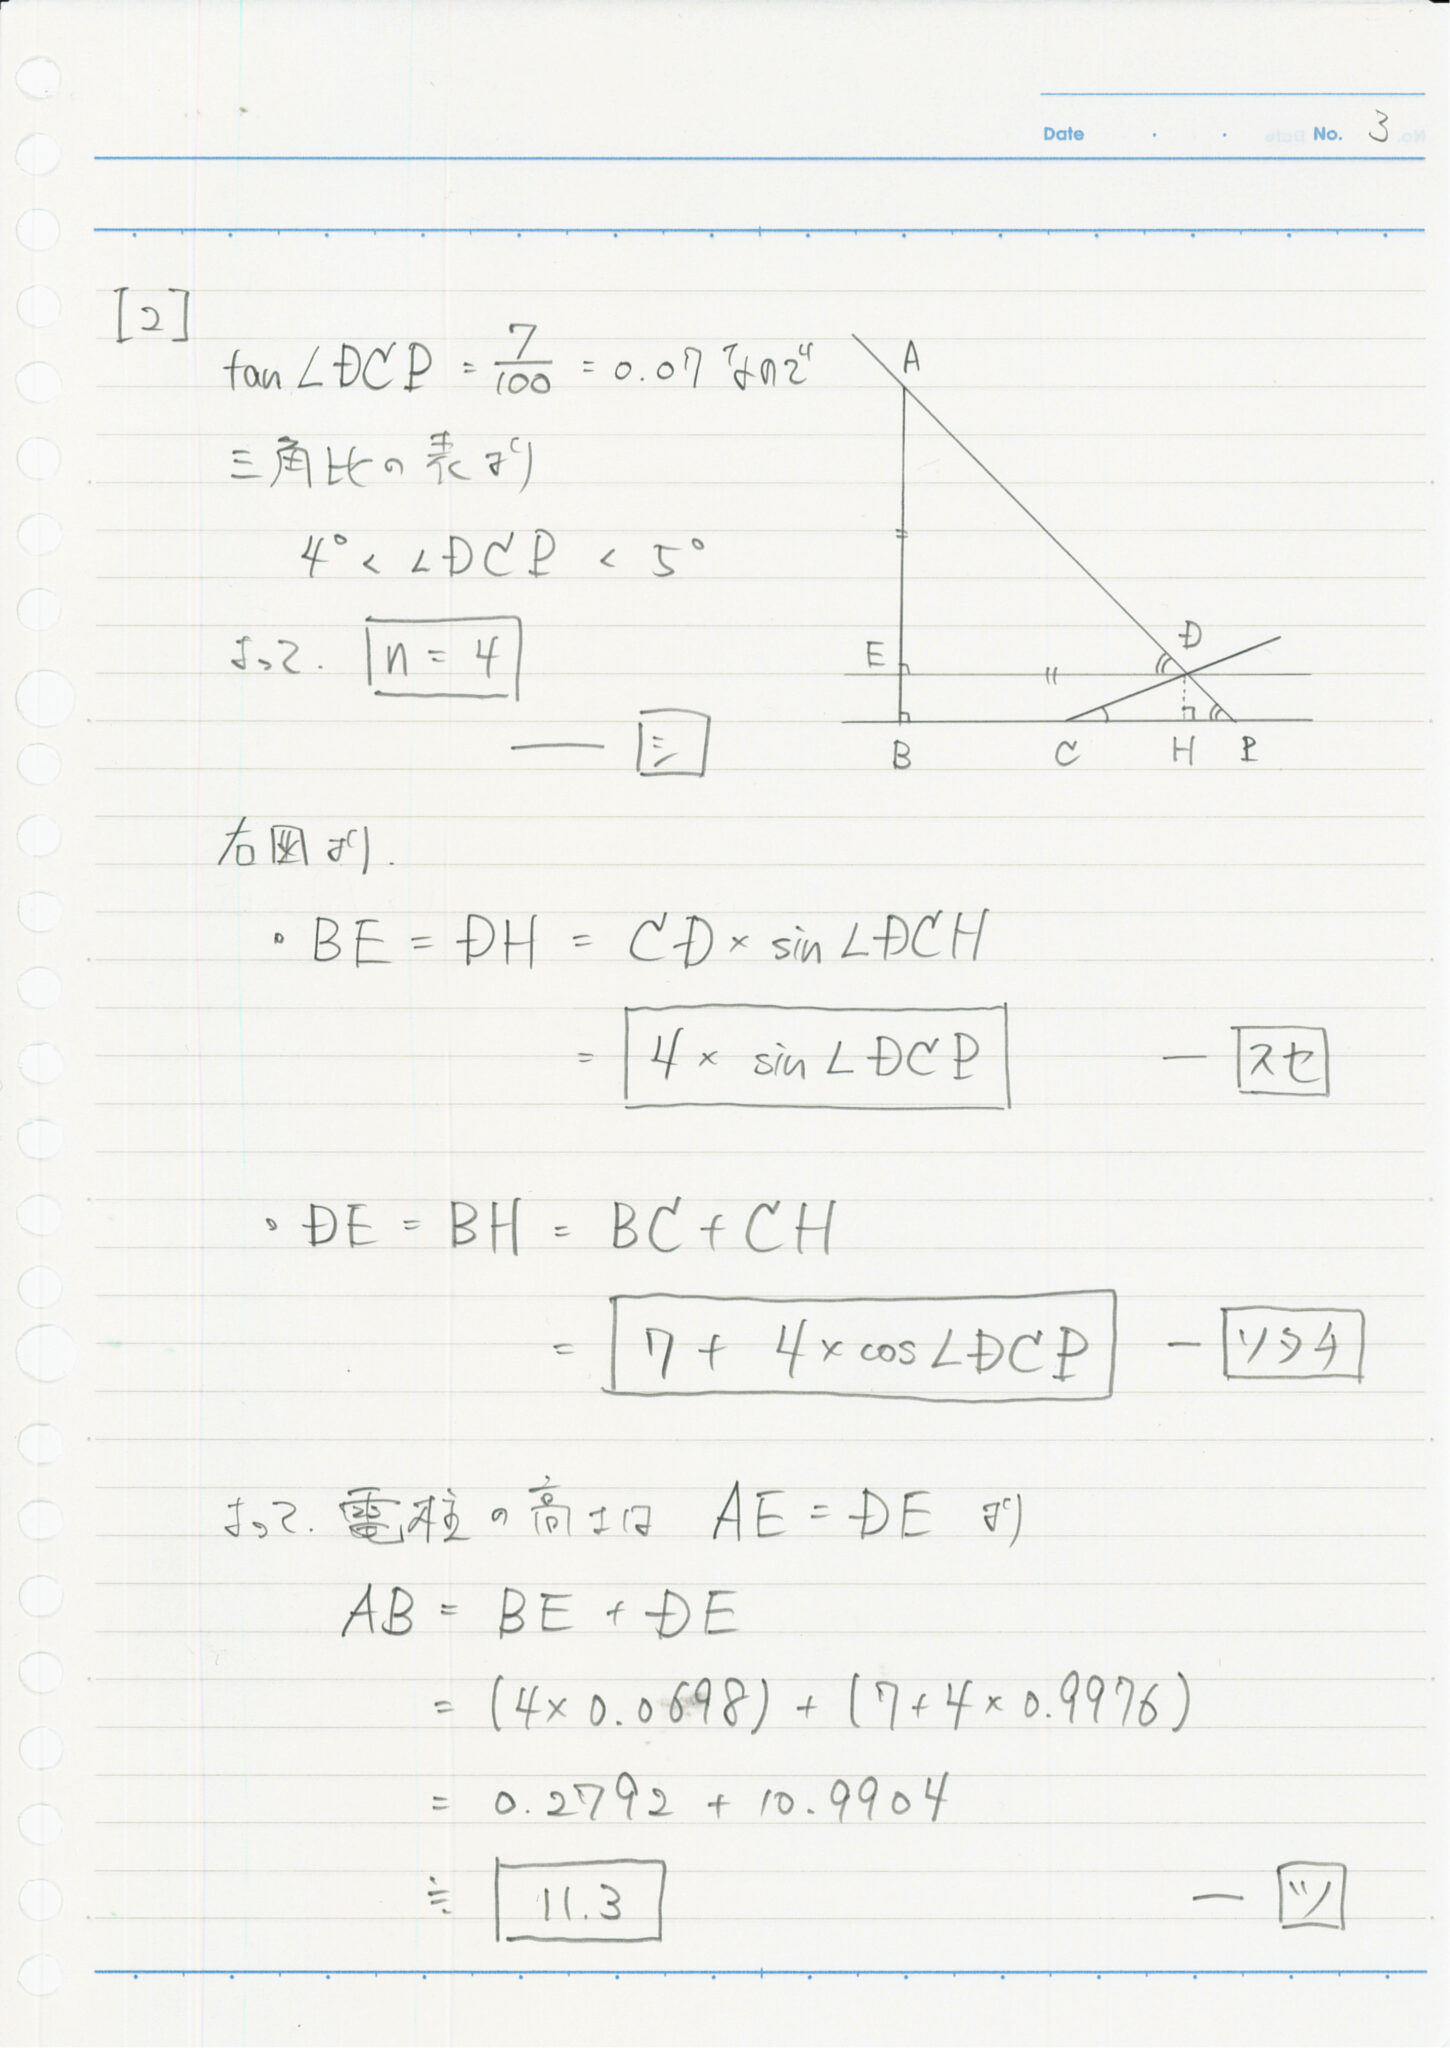 Date ・ ・ No. 3
[2]
tan∠DCP = 7/100 = 0.07 なので
三角比の表より
4° < ∠DCP < 5°
よって. n = 4
― シ
A
E
D
B
C
H
P
右図より.
・BE = DH = CD × sin∠DCH
= 4 × sin∠DCP ― スセ
・DE = BH = BC + CH
= 7 + 4 × cos∠DCP ― ソタチ
よって. 電柱の高さは AE = DE より
AB = BE + DE
= (4 × 0.0698) + (7 + 4 × 0.9976)
= 0.2792 + 10.9904
≒ 11.3 ― ツ